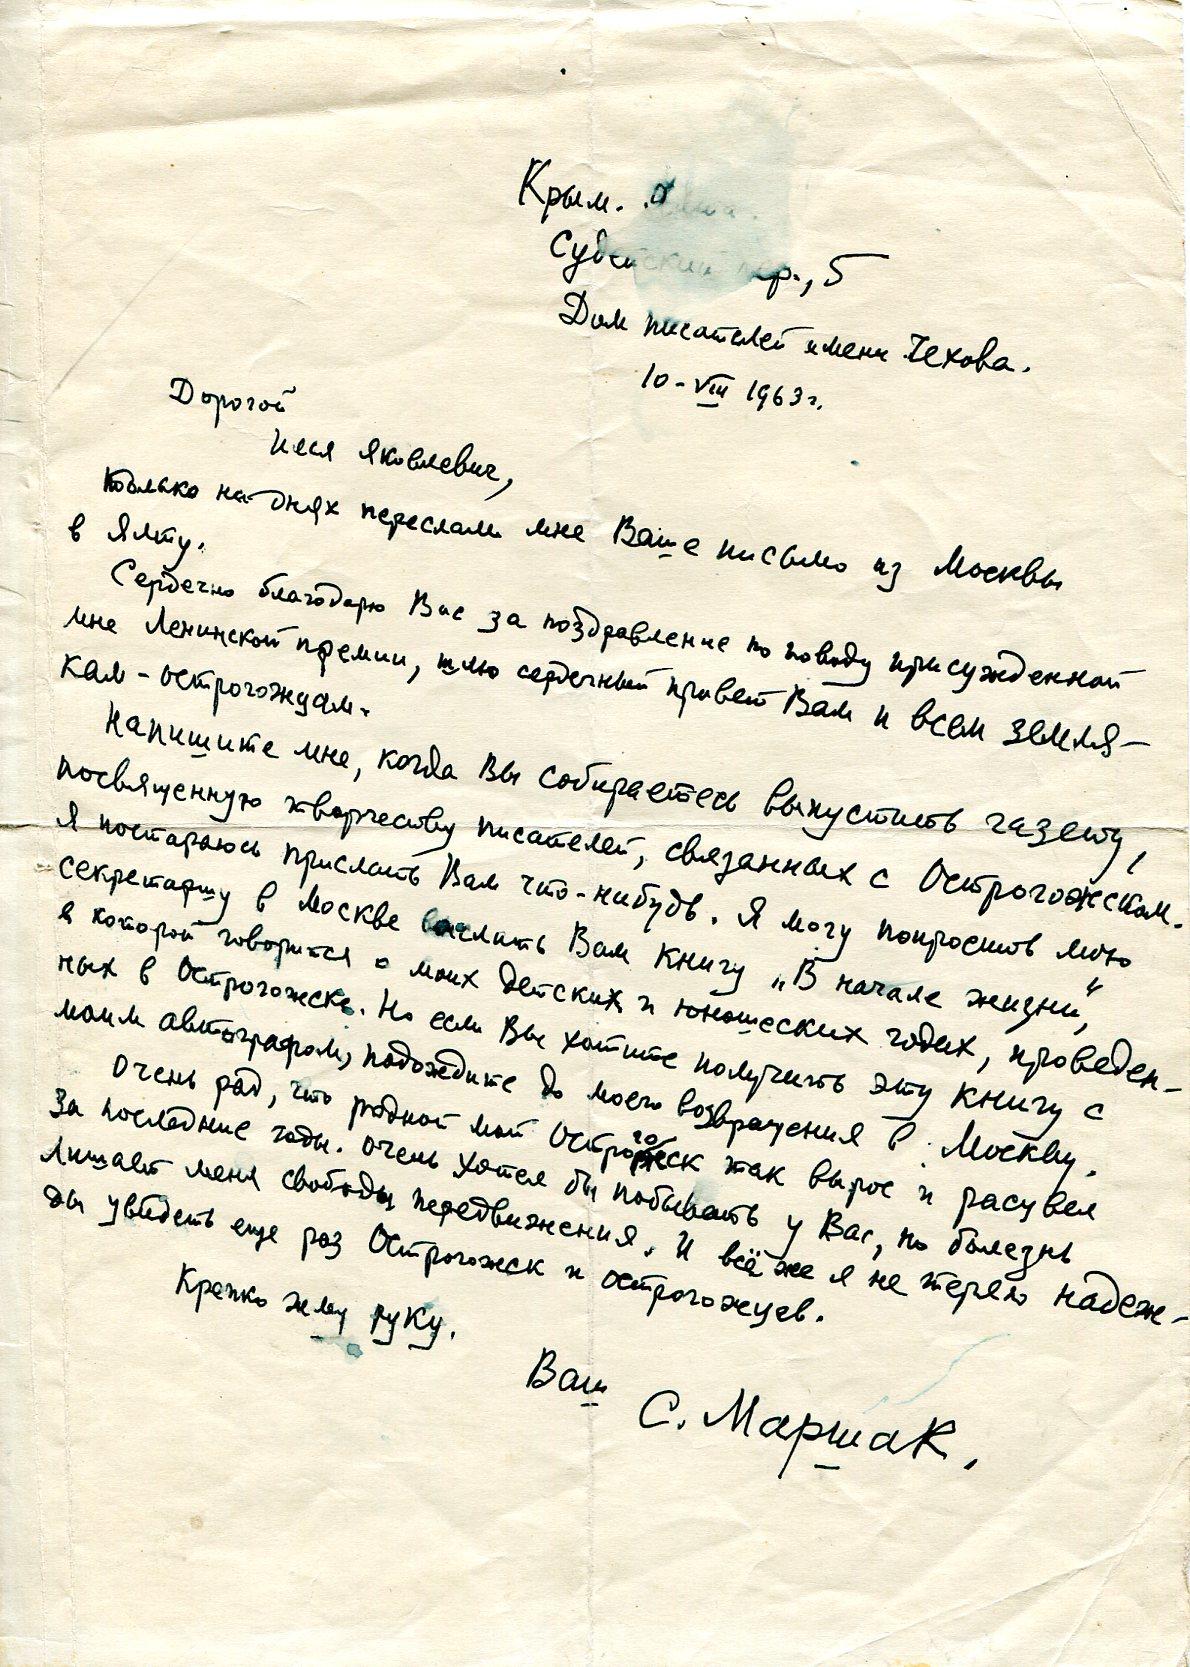 Крым. Ялта.
Субейский пер., 5
Дом писателей имени Чехова.
10-VIII 1963 г.
Дорогой
Яковлевич,
только на днях переслали мне Ваше письмо из Москвы
в Ялту.
Сердечно благодарю Вас за поздравление по поводу присужденной
мне Ленинской премии, шлю сердечный привет Вам и всем земля-
кам-острогожцам.
Напишите мне, когда Вы собираетесь выпустить газету,
посвященную творчеству писателей, связанных с Острогожском.
Я постараюсь прислать Вам что-нибудь. Я могу попросить мою
секретаршу в Москве выслать Вам книгу „В начале жизни“,
в которой говорится о моих детских и юношеских годах, проведен-
ных в Острогожске. Но если Вы хотите получить эту книгу с
моим автографом, подождите до моего возвращения в Москву.
Очень рад, что родной мой Острогожск так вырос и расцвел
за последние годы. Очень хотел бы побывать у Вас, но болезнь
лишает меня свободы передвижения. И всё же я не теряю надеж-
ды увидеть еще раз Острогожск и острогожцев.
Крепко жму руку.
Ваш
С. Маршак.